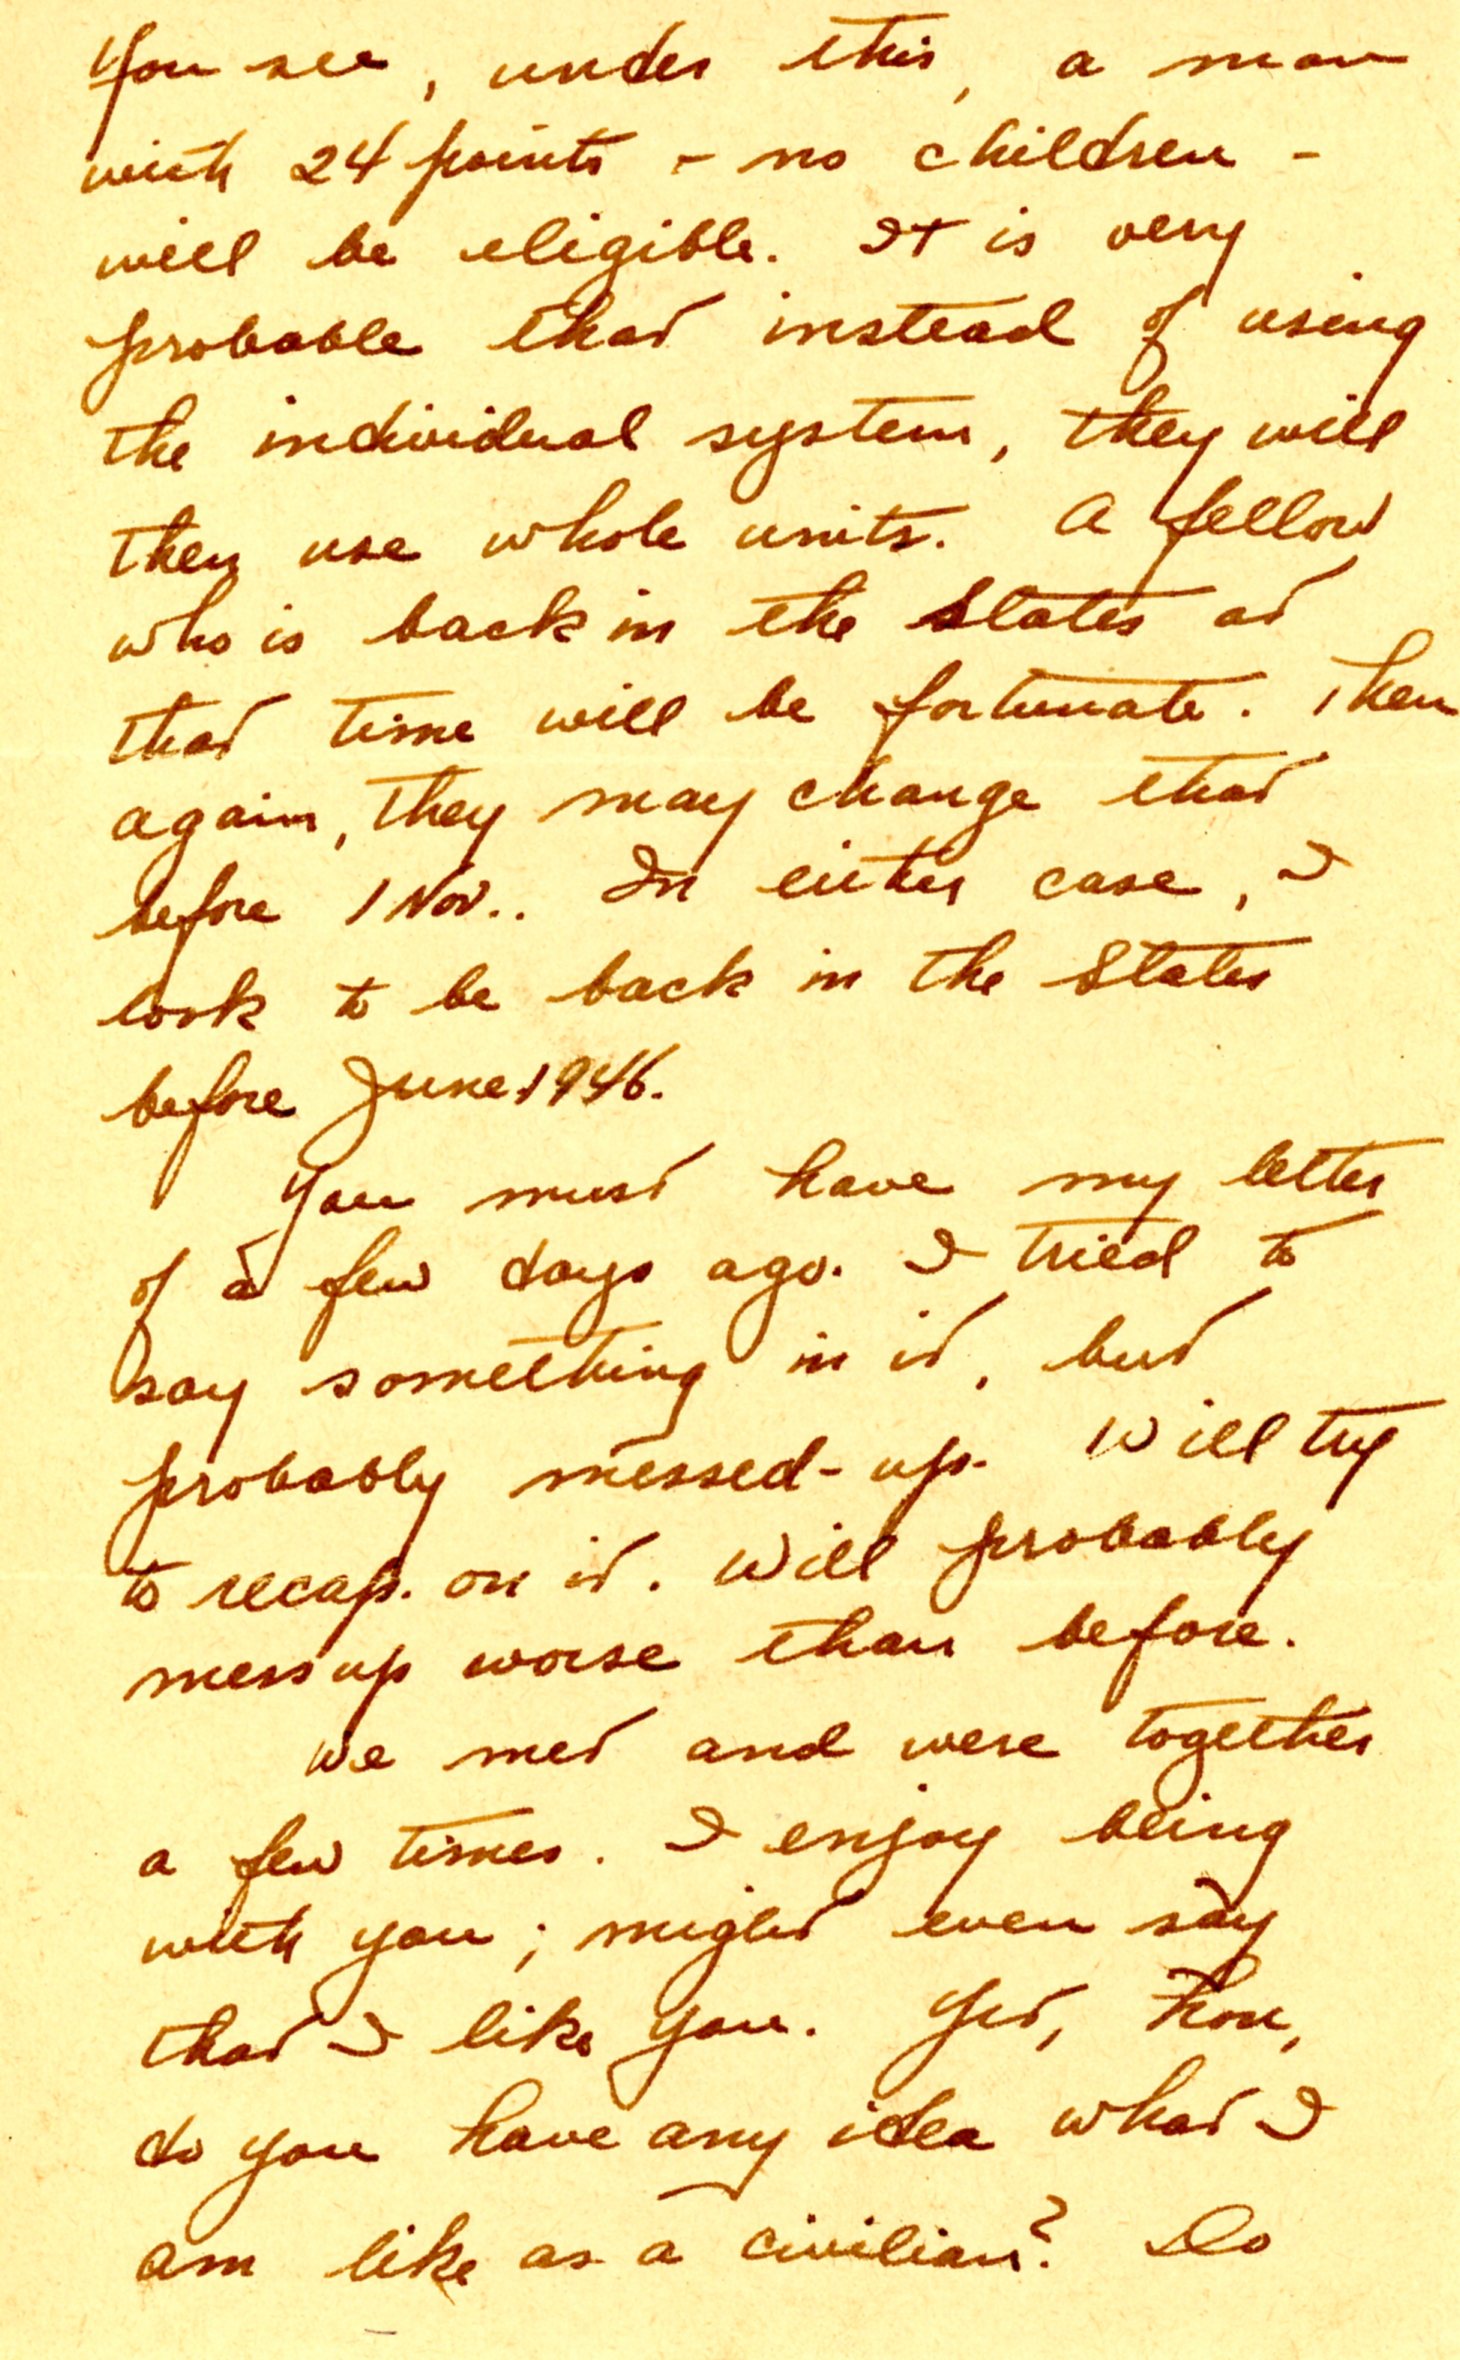 You see, under this, a man
with 24 points - no children -
will be eligible. It is very
probable that instead of using
the individual system, they will
then use whole units. A fellow
who is back in the States at
that time will be fortunate. Then
again, they may change that
before 1 Nov.. In either case, I
look to be back in the States
before June 1946.
You must have my letter
of a few days ago. I tried to
say something in it, but
probably messed-up. Will try
to recap. on it. Will probably
mess up worse than before.
We met and were together
a few times. I enjoy being
with you; might even say
that I like you. Yet, hon,
do you have any idea what I
am like as a civilian? Do